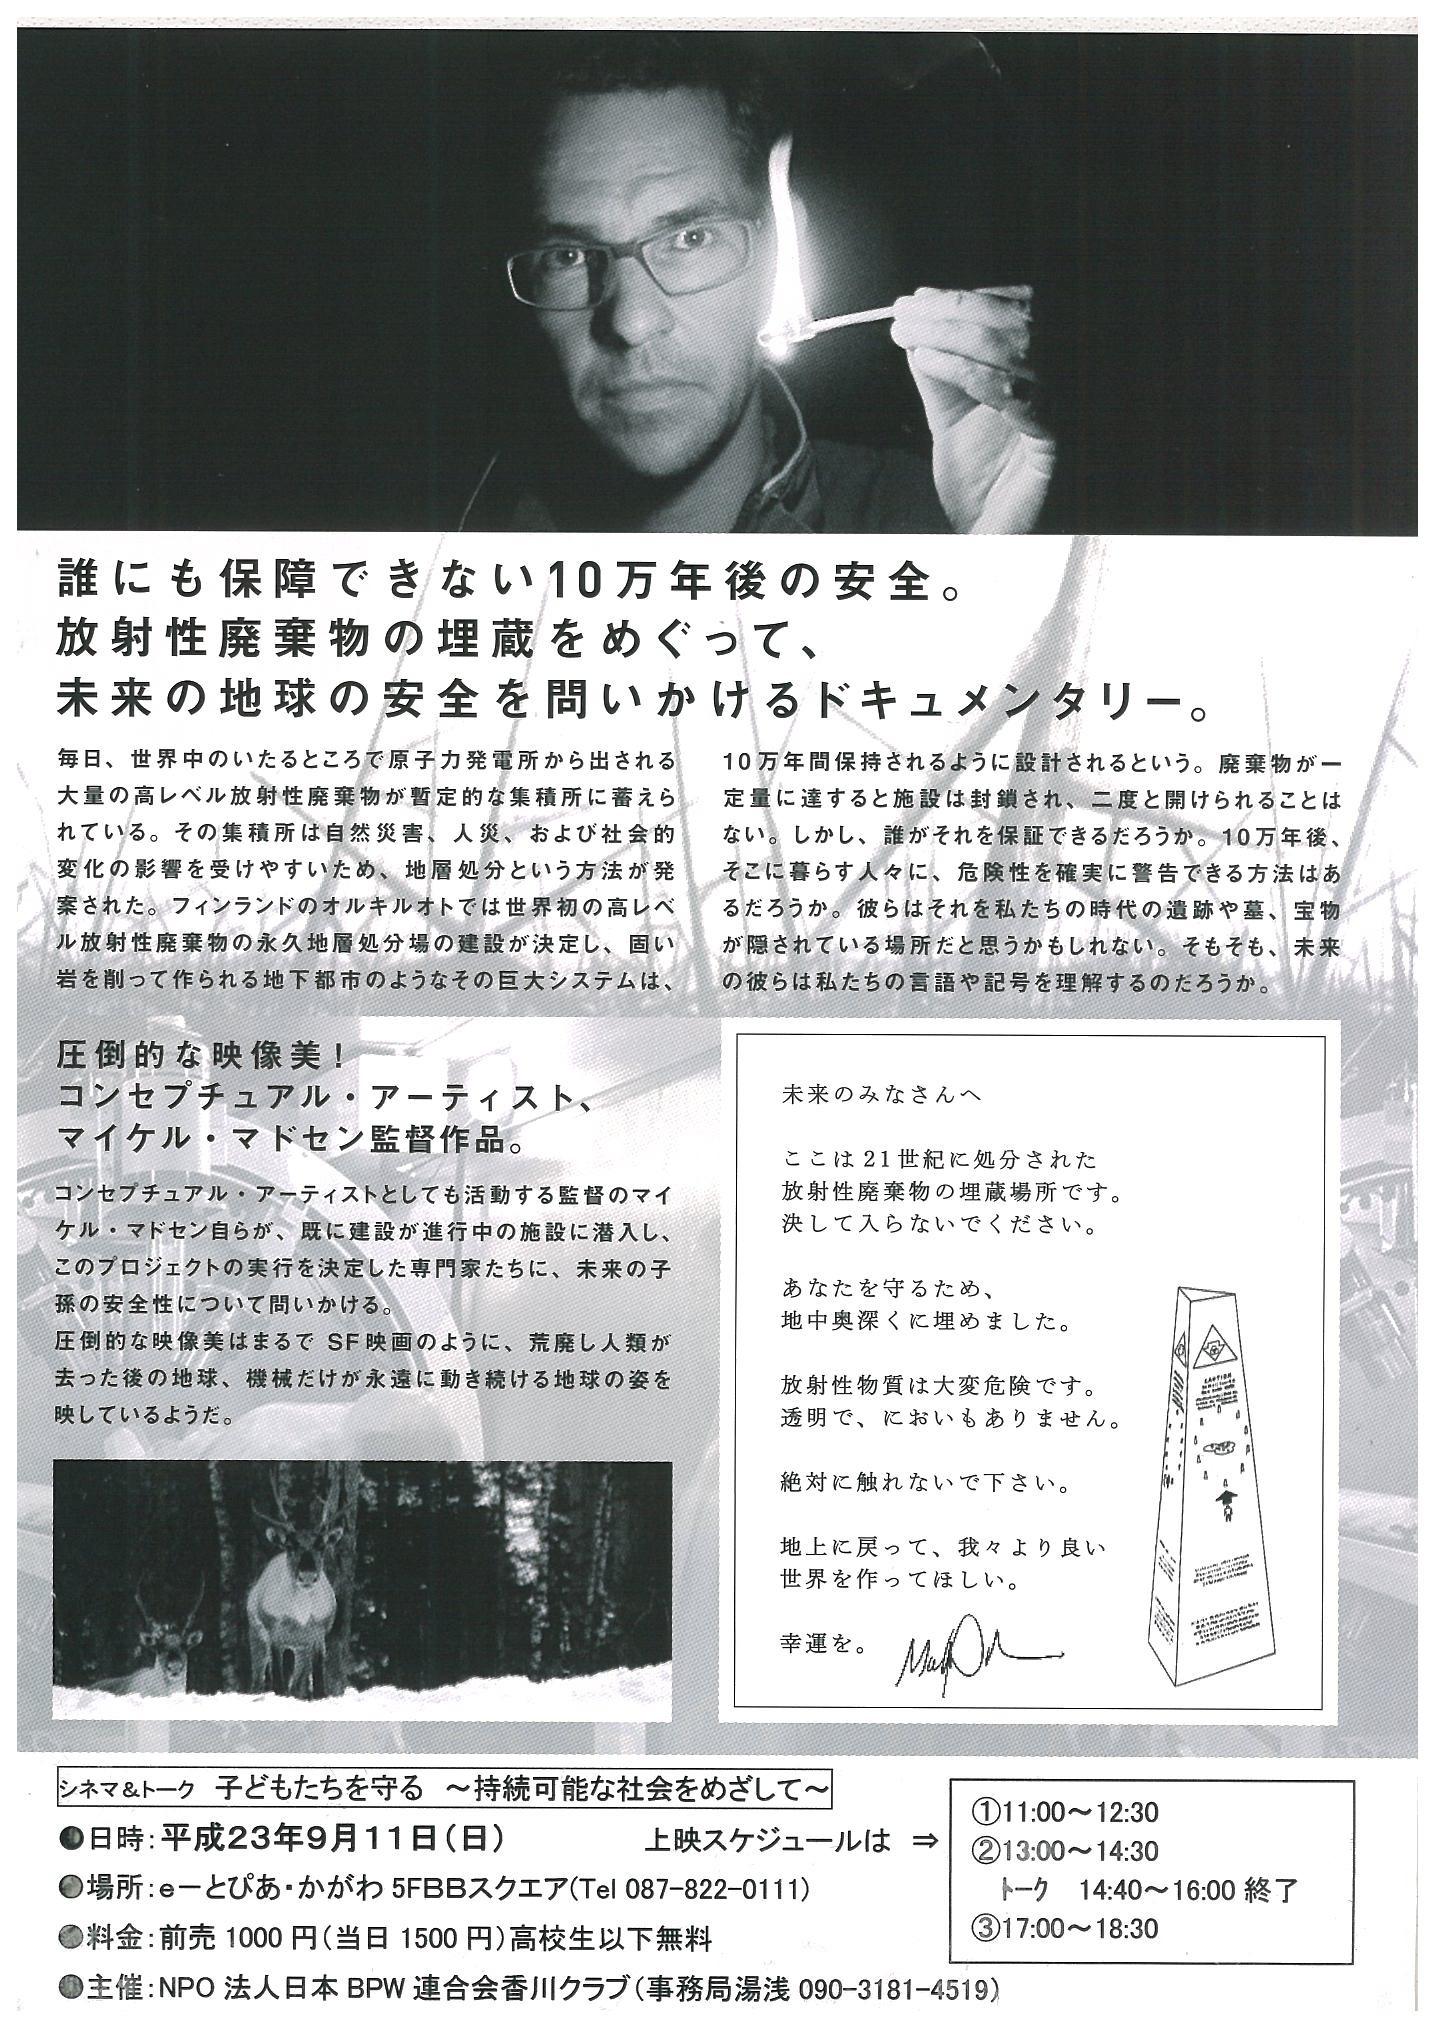 誰にも保障できない10万年後の安全。
放射性廃棄物の埋蔵をめぐって、
未来の地球の安全を問いかけるドキュメンタリー。
毎日、世界中のいたるところで原子力発電所から出される
大量の高レベル放射性廃棄物が暫定的な集積所に蓄えら
れている。その集積所は自然災害、人災、および社会的
変化の影響を受けやすいため、地層処分という方法が発
案された。フィンランドのオルキルオトでは世界初の高レベ
ル放射性廃棄物の永久地層処分場の建設が決定し、固い
岩を削って作られる地下都市のようなその巨大システムは、
10万年間保持されるように設計されるという。廃棄物が一
定量に達すると施設は封鎖され、二度と開けられることは
ない。しかし、誰がそれを保証できるだろうか。10万年後、
そこに暮らす人々に、危険性を確実に警告できる方法はあ
るだろうか。彼らはそれを私たちの時代の遺跡や墓、宝物
が隠されている場所だと思うかもしれない。そもそも、未来
の彼らは私たちの言語や記号を理解するのだろうか。
圧倒的な映像美！
コンセプチュアル・アーティスト、
マイケル・マドセン監督作品。
コンセプチュアル・アーティストとしても活動する監督のマイ
ケル・マドセン自らが、既に建設が進行中の施設に潜入し、
このプロジェクトの実行を決定した専門家たちに、未来の子
孫の安全性について問いかける。
圧倒的な映像美はまるで SF映画のように、荒廃し人類が
去った後の地球、機械だけが永遠に動き続ける地球の姿を
映しているようだ。
未来のみなさんへ
ここは 21世紀に処分された
放射性廃棄物の埋蔵場所です。
決して入らないでください。
あなたを守るため、
地中奥深くに埋めました。
放射性物質は大変危険です。
透明で、においもありません。
絶対に触れないで下さい。
地上に戻って、我々より良い
世界を作ってほしい。
幸運を。
CAUTION
シネマ＆トーク　子どもたちを守る　～持続可能な社会をめざして～
●日時：平成２３年９月１１日（日）　上映スケジュールは ⇒
●場所：ｅ－とぴあ・かがわ 5FＢＢスクエア（Tel 087-822-0111）
●料金：前売 1000 円（当日 1500 円）高校生以下無料
●主催：NPO 法人日本 BPW 連合会香川クラブ（事務局湯浅 090-3181-4519）
①11:00～12:30
②13:00～14:30
ﾄｰｸ　14:40～16:00 終了
③17:00～18:30